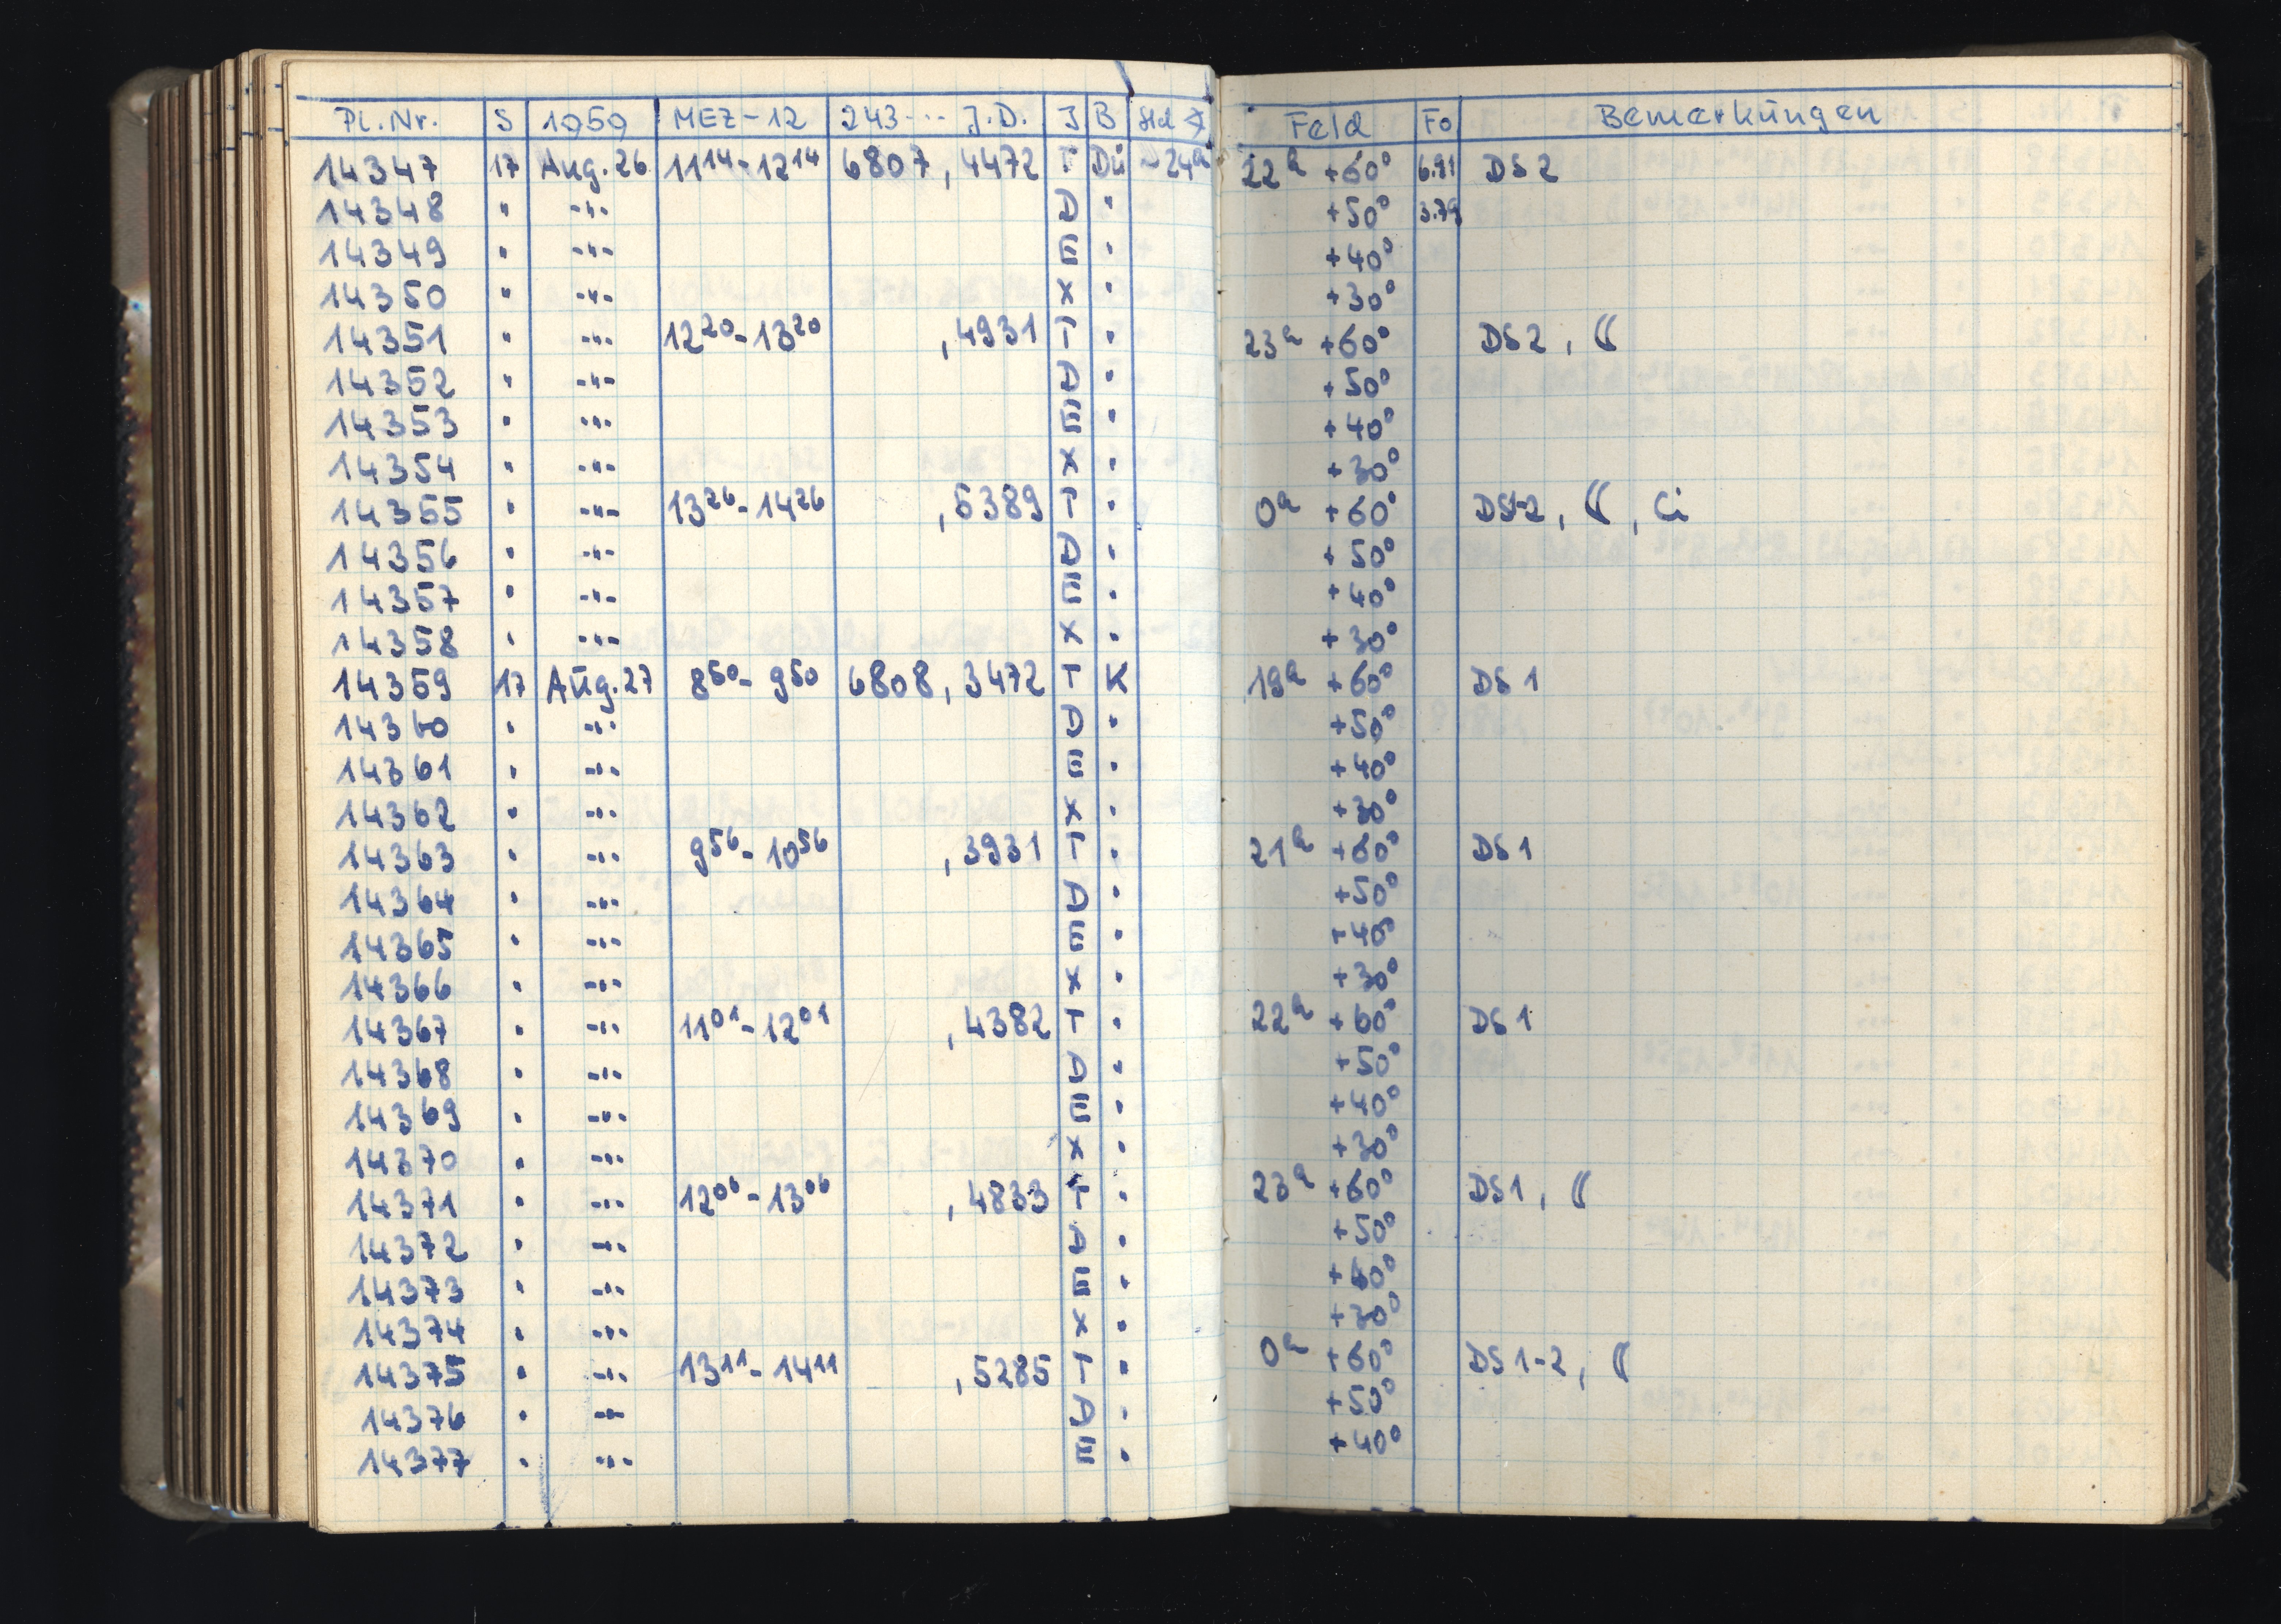 Pl.Nr. S 1959 MEZ-12 243... J.D. J B Std ∢ Feld Fo Bemerkungen
14347 17 Aug.26 11¹⁴-12¹⁴ 6807,4472 T Dü ~24ʰ 22ʰ +60° 6.91 DS 2
14348 " -"- D " +50° 3.79
14349 " -"- E " +40°
14350 " -"- X " +30°
14351 " -"- 12²⁰-13²⁰ ,4931 T " 23ʰ +60° DS 2, ☾
14352 " -"- D " +50°
14353 " -"- E " +40°
14354 " -"- X " +30°
14355 " -"- 13²⁶-14²⁶ ,5389 T " 0ʰ +60° DS1-2, ☾, Ci
14356 " -"- D " +50°
14357 " -"- E " +40°
14358 " -"- X " +30°
14359 17 Aug.27 8⁵⁰-9⁵⁰ 6808,3472 T K 19ʰ +60° DS 1
14360 " -"- D " +50°
14361 " -"- E " +40°
14362 " -"- X " +30°
14363 " -"- 9⁵⁶-10⁵⁶ ,3931 T " 21ʰ +60° DS 1
14364 " -"- D " +50°
14365 " -"- E " +40°
14366 " -"- X " +30°
14367 " -"- 11⁰¹-12⁰¹ ,4382 T " 22ʰ +60° DS 1
14368 " -"- D " +50°
14369 " -"- E " +40°
14370 " -"- X " +30°
14371 " -"- 12⁰⁶-13⁰⁶ ,4833 T " 23ʰ +60° DS1, ☾
14372 " -"- D " +50°
14373 " -"- E " +40°
14374 " -"- X " +30°
14375 " -"- 13¹¹-14¹¹ ,5285 T " 0ʰ +60° DS 1-2, ☾
14376 " -"- D " +50°
14377 " -"- E " +40°